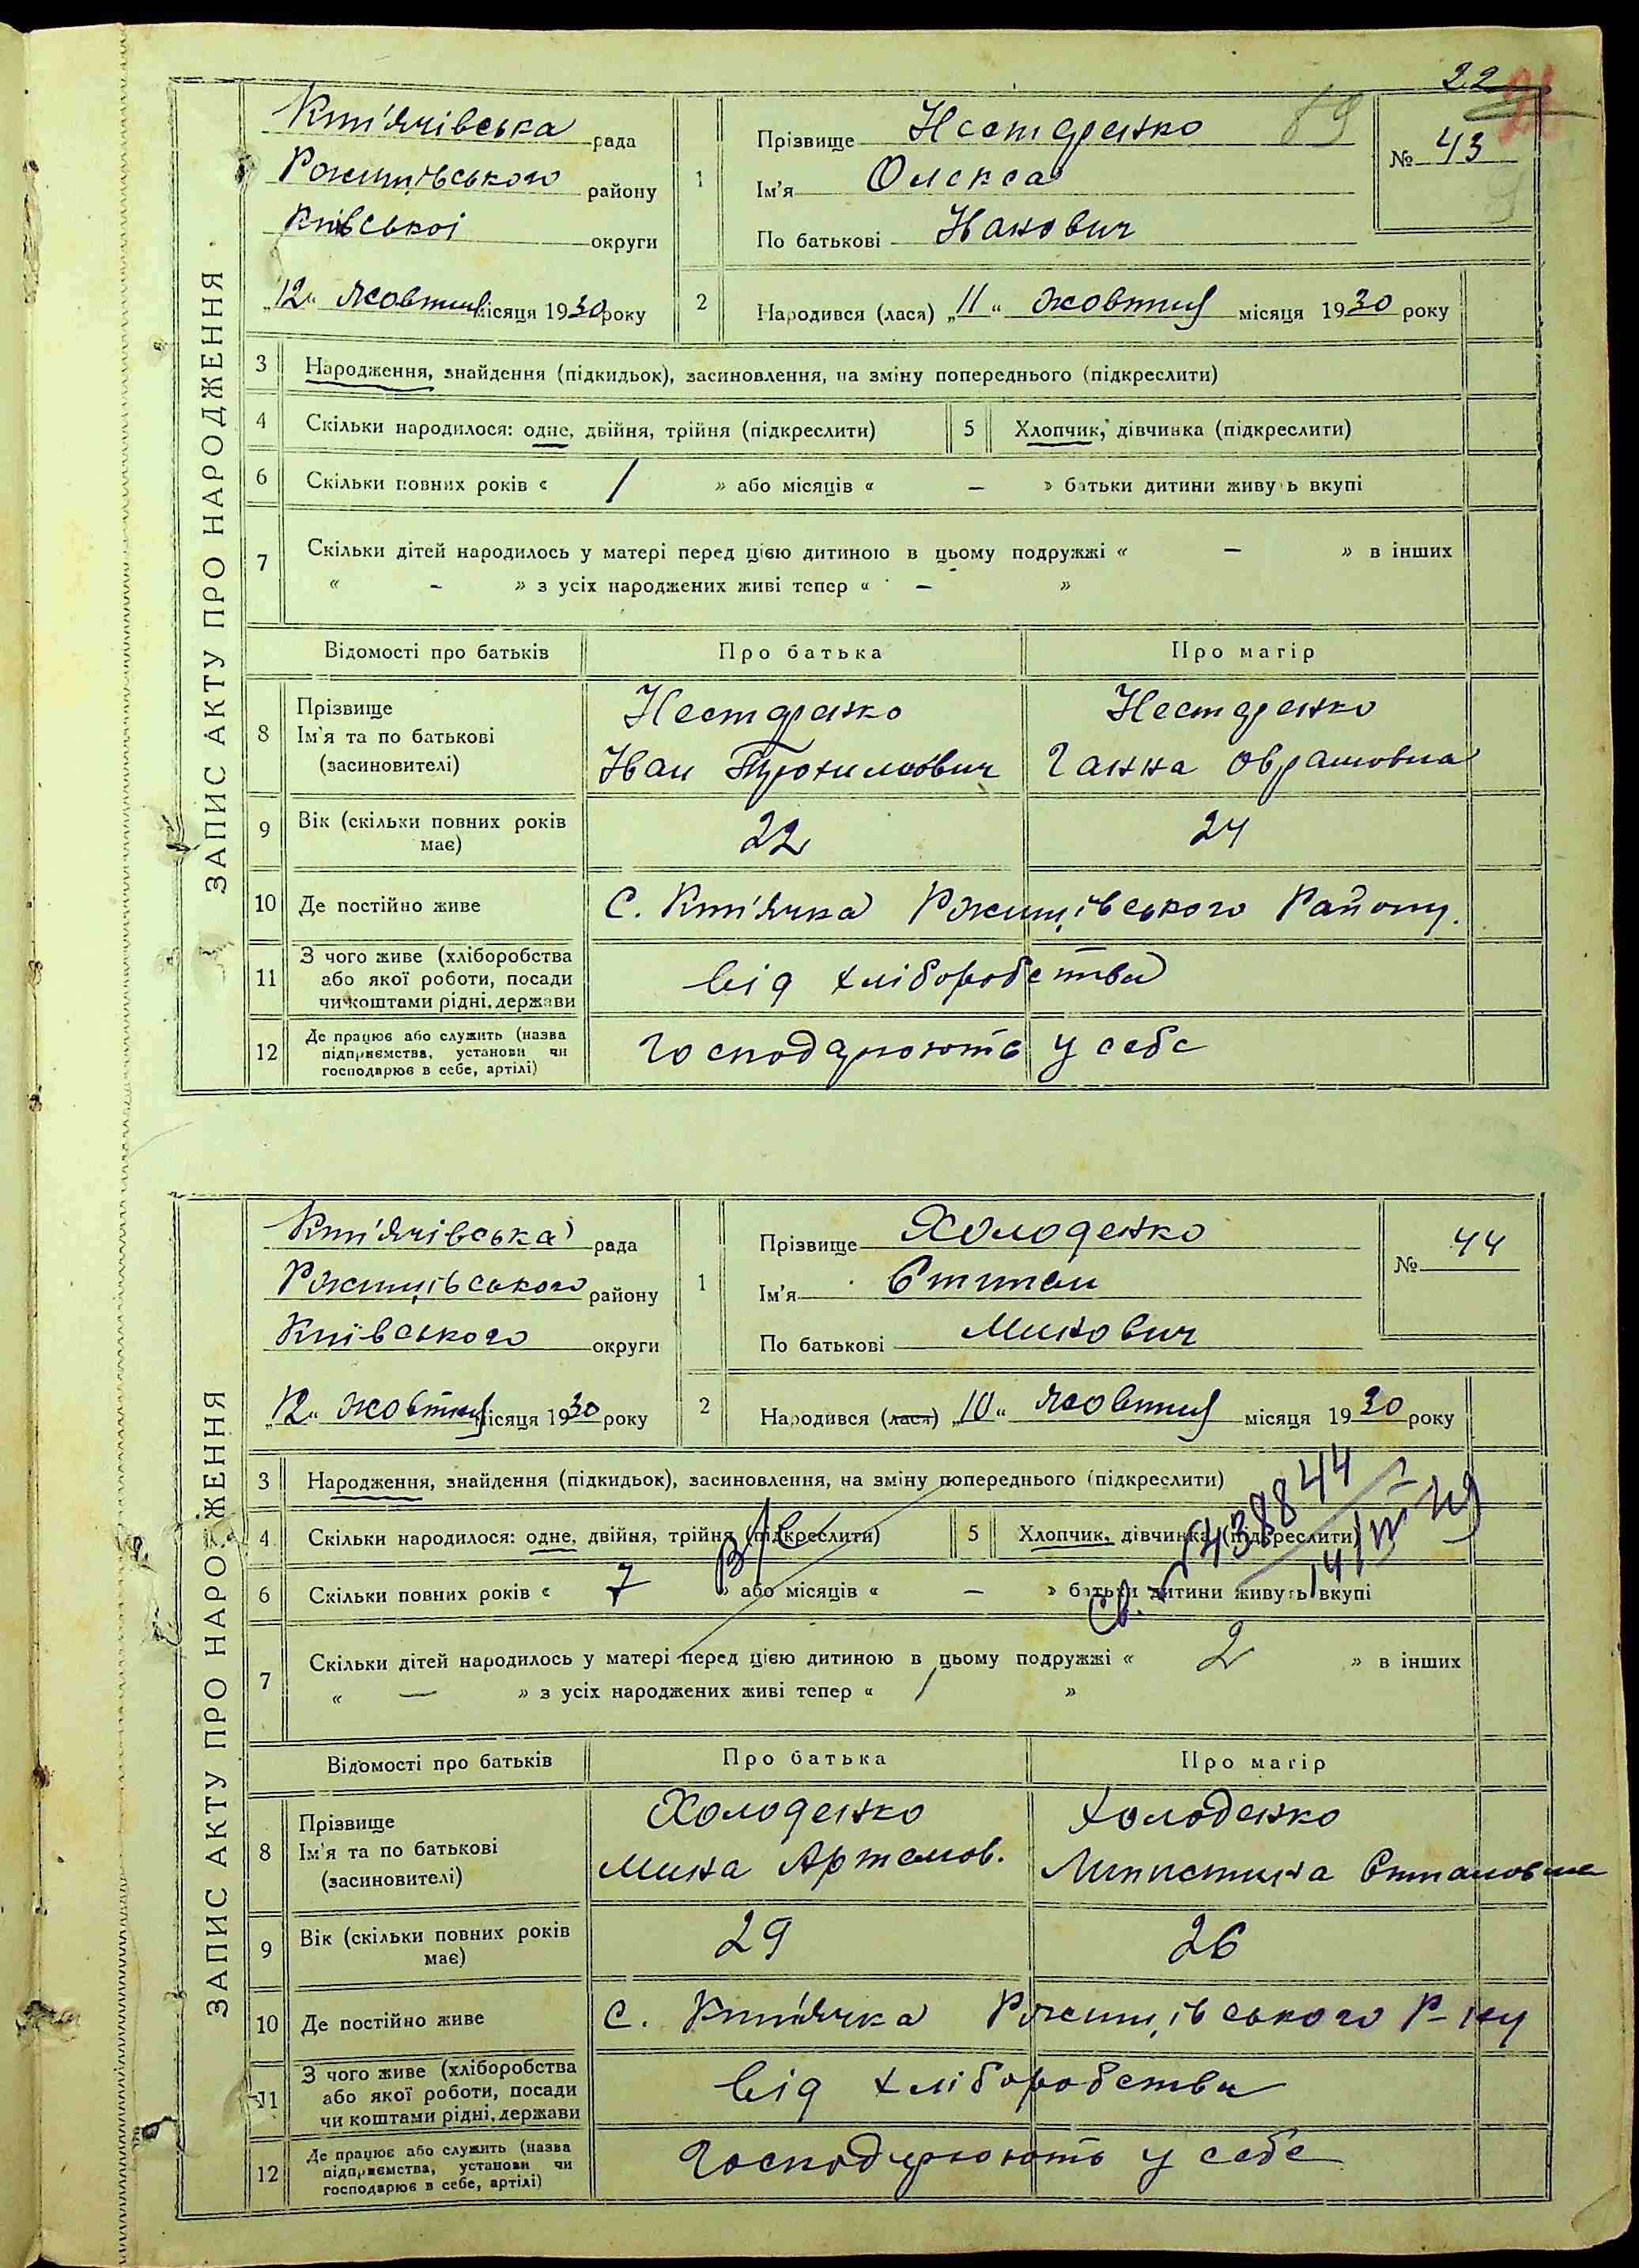 22
ЗАПИС АКТУ ПРО НАРОДЖЕННЯ
Кт'ячівська рада
Рожнівського району
Київської округи
„12“ жовтня місяця 1930 року
1
Прізвище Нестеренко
Ім'я Олекса
По батькові Іванович
№ 43
89
2
Народився (лася) „11“ жовтня місяця 1930 року
3 Народження, знайдення (підкидьок), засиновлення, на зміну попереднього (підкреслити)
4 Скільки народилося: одне, двійня, трійня (підкреслити) 5 Хлопчик, дівчинка (підкреслити)
6 Скільки повних років « 1 » або місяців « – » батьки дитини живуть вкупі
7 Скільки дітей народилось у матері перед цією дитиною в цьому подружжі « – » в інших
« – » з усіх народжених живі тепер « – »
Відомості про батьків Про батька Про матір
8 Прізвище Ім'я та по батькові (засиновителі)
Нестеренко Нестеренко
Іван Трохимович Ганна Оврамовна
9 Вік (скільки повних років має) 22 24
10 Де постійно живе с. Кт'ячка Району.
11 З чого живе (хліборобства або якої роботи, посади чи коштами рідні, держави від хліборобства
12 Де працює або служить (назва підприємства, установи чи господарює в себе, артілі) Господарюють у себе
ЗАПИС АКТУ ПРО НАРОДЖЕННЯ
Кт'ячівська рада
району
Київського округи
„12“ жовтня місяця 1930 року
1
Прізвище Холоденко
Ім'я Степан
По батькові Минович
№ 44
2
Народився (лася) „10“ жовтня місяця 1930 року
3 Народження, знайдення (підкидьок), засиновлення, на зміну попереднього (підкреслити)
4 Скільки народилося: одне, двійня, трійня (підкреслити) 5 Хлопчик, дівчинка (підкреслити)
6 Скільки повних років « 7 » або місяців « – » батьки дитини живуть вкупі
7 Скільки дітей народилось у матері перед цією дитиною в цьому подружжі « 2 » в інших
« — » з усіх народжених живі тепер « 1 »
Відомості про батьків Про батька Про матір
8 Прізвище Ім'я та по батькові (засиновителі)
Холоденко Холоденко
Мина Артемов.
9 Вік (скільки повних років має) 29 26
10 Де постійно живе с. Кт'ячка Р-ну
11 З чого живе (хліборобства або якої роботи, посади чи коштами рідні, держави від хліборобства
12 Де працює або служить (назва підприємства, установи чи господарює в себе, артілі) Господарюють у себе